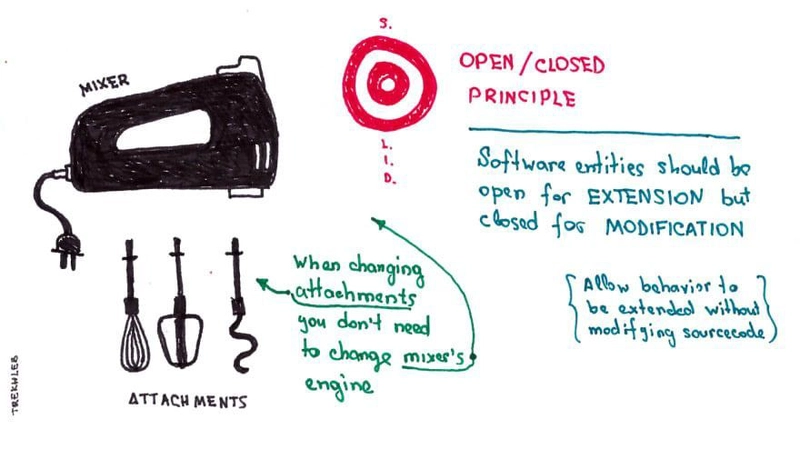 MIXER
S.
L.
I.
D.
OPEN/CLOSED
PRINCIPLE
Software entities should be
open for EXTENSION but
closed for MODIFICATION
{Allow behavior to
be extended without
modifying sourcecode}
When changing
attachments
you don't need
to change mixer's
engine
ATTACHMENTS
TREKHLEB